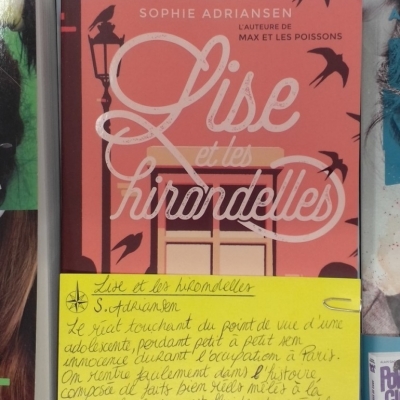 SOPHIE ADRIANSEN
L'AUTEURE DE
MAX ET LES POISSONS
Lise
et les
hirondelles
Lise et les hirondelles
S. Adriansen
Le récit touchant du point de vue d'une
adolescente, perdant petit à petit son
innocence durant l'occupation à Paris.
On rentre facilement dans l'histoire,
composée de faits bien réels mêlés à la